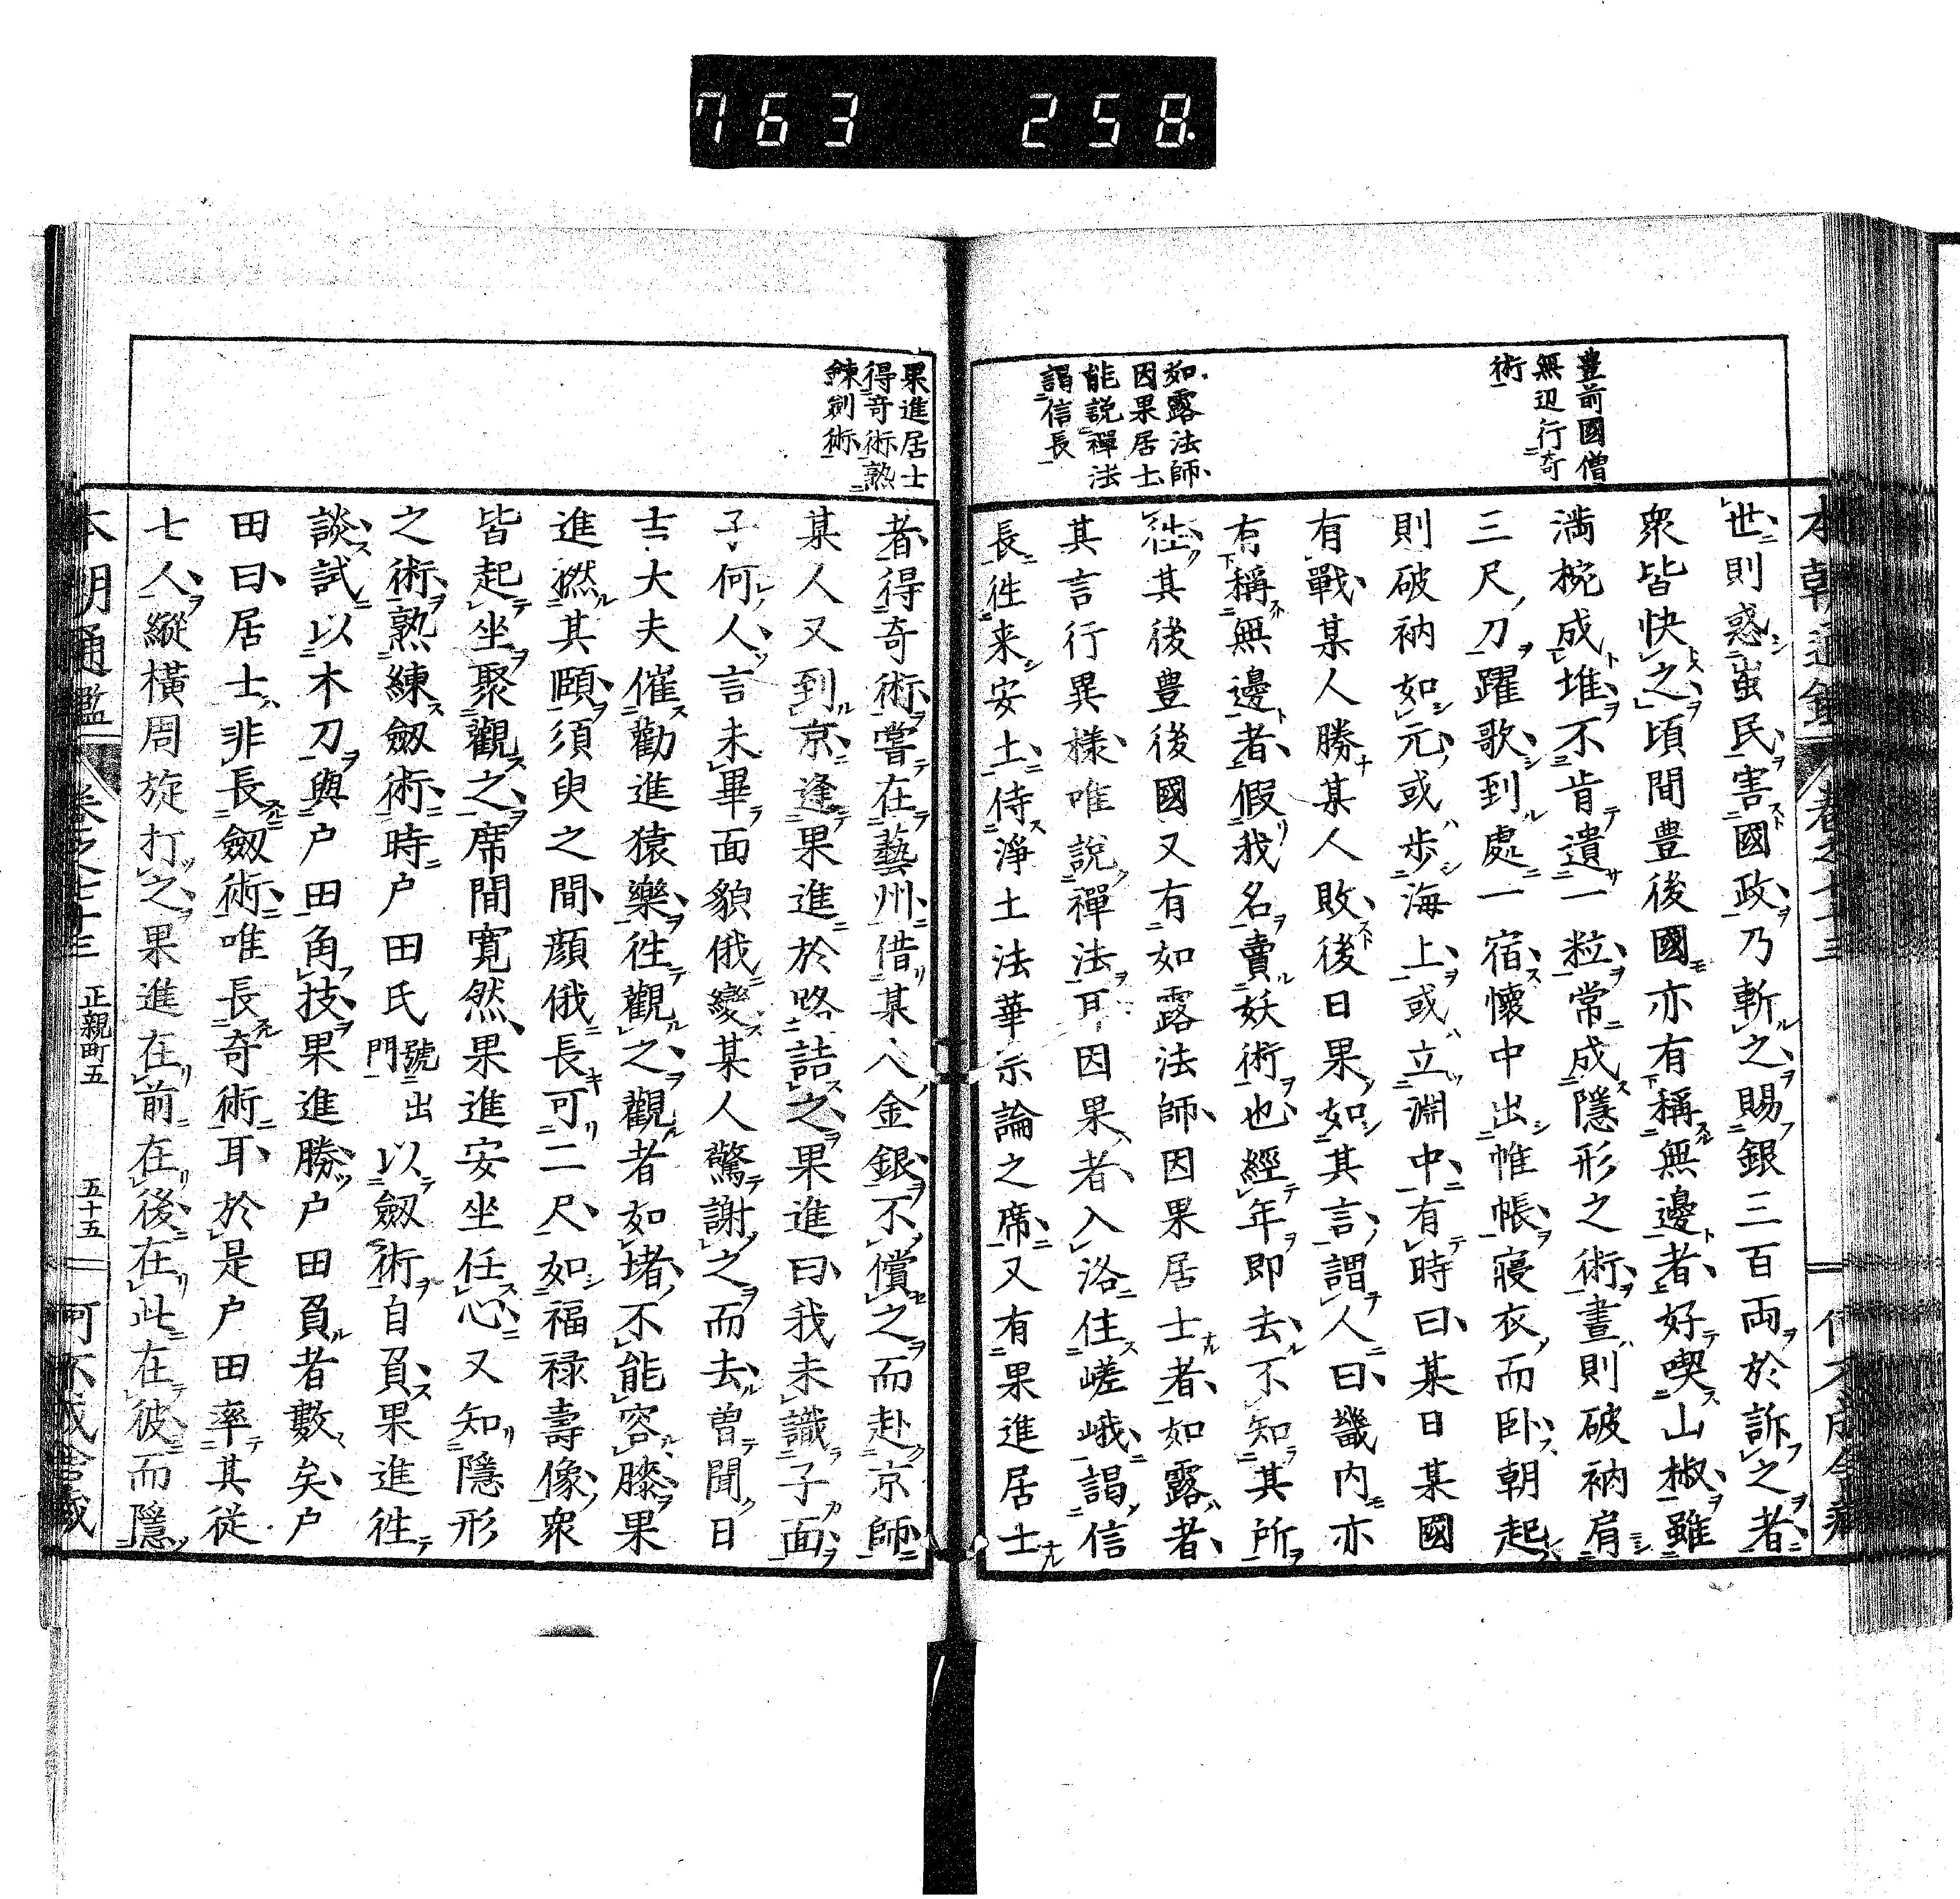 763 258.
豊前國僧
無辺行奇
術
如露法師
因果居士
能説禪法
謁信長
世則惑蚩民害國政乃斬之賜銀三百両於訴之者
衆皆快之頃間豊後國亦有稱無邊者好喫山椒雖
満椀成堆不肯遺一粒常成隱形之術晝則破衲肩
三尺刀躍歌到處一宿懷中出帷帳寢衣而臥朝起
則破衲如元或歩海上或立淵中有時曰某日某國
有戰某人勝某人敗後日果如其言謂人曰畿内亦
有稱無邊者假我名賣妖術也經年即去不知其所
徃其後豊後國又有如露法師因果居士者如露者
其言行異樣唯説禪法耳因果者入洛住嵯峨謁信
長徃来安土侍淨土法華宗論之席又有果進居士
果進居士
得奇術熟
錬劍術
者得奇術嘗在藝州借某人金銀不償之而赴京師
某人又到京逢果進於路詰之果進曰我未識子面
子何人言未畢面貌俄變某人驚謝之而去曽聞日
士大夫催勸進猿樂徃觀之觀者如堵不能容膝果
進撚其頤須臾之間顔俄長可二尺如福禄壽像衆
皆起坐聚觀之席間寛然果進安坐任心又知隱形
之術熟練劔術時戸田氏號出門以劔術自負果進徃
談試以木刀與戸田角技果進勝戸田負者數矣戸
田曰居士非長劔術唯長奇術耳於是戸田率其従
七人縱横周旋打之果進在前在後在此在彼而隱
本朝通鑑 卷之七十三 正親町五 五十五